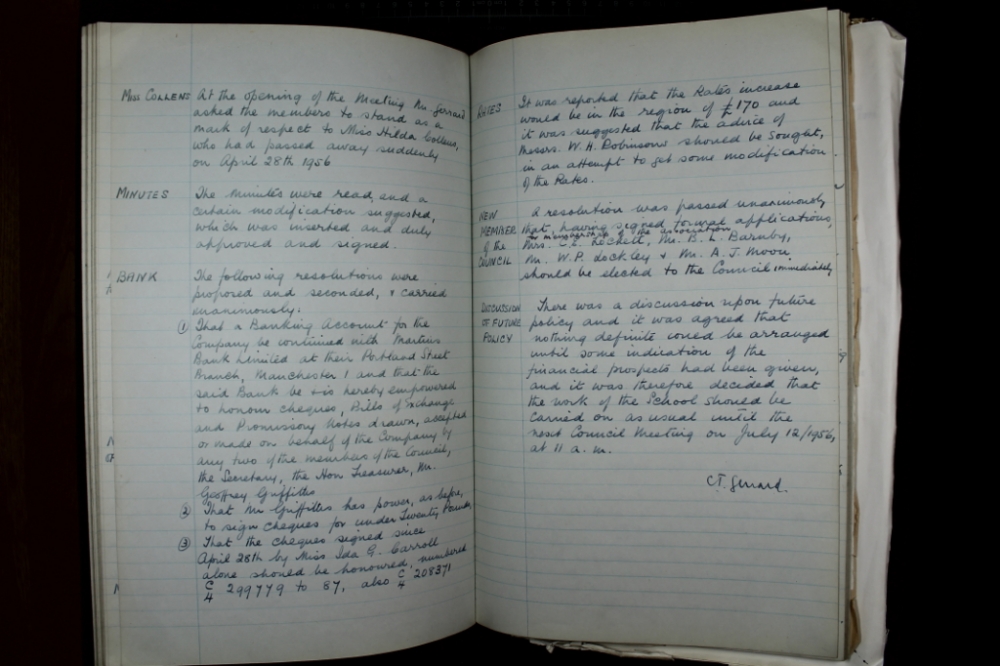 MISS COLLENS At the opening of the Meeting Mr. Gerrard
asked the members to stand as a
mark of respect to Miss Hilda Collens,
who had passed away suddenly
on April 28th 1956
MINUTES The Minutes were read, and a
certain modification suggested,
which was inserted and duly
approved and signed.
BANK The following resolutions were
proposed and seconded, & carried
unanimously.
① That a Banking Account for the
Company be continued with Martins
Bank Limited at their Portland Street
Branch, Manchester 1 and that the
said Bank be & is hereby empowered
to honour cheques, Bills of Exchange
and Promissory Notes drawn, accepted
or made on behalf of the Company by
any two of the members of the Council,
the Secretary, the Hon Treasurer, Mr.
Geoffrey Griffiths
② That Mr Griffiths has power, as before,
to sign cheques for under Twenty Pounds
③ That the cheques signed since
April 28th by Miss Ida G. Carroll
alone should be honoured, numbered
C/4 299779 to 87, also C/4 208371
RATES It was reported that the Rates increase
would be in the region of £170 and
it was suggested that the advice of
Messrs. W. H. Robinsons should be sought,
in an attempt to get some modification
of the Rates.
NEW A resolution was passed unanimously
MEMBER that, having signed formal applications,
for membership of the association
of the Mrs. C.E. Lockett, Mr. B. L. Barnby,
COUNCIL Mr. W. P. Lockley & Mr. A. J. Moon,
should be elected to the Council immediately
DISCUSSION There was a discussion upon future
OF FUTURE policy and it was agreed that
POLICY nothing definite could be arranged
until some indication of the
financial prospects had been given,
and it was therefore decided that
the work of the School should be
carried on as usual until the
next Council Meeting on July 12/1956,
at 11 a.m.
C.T. Gerrard.